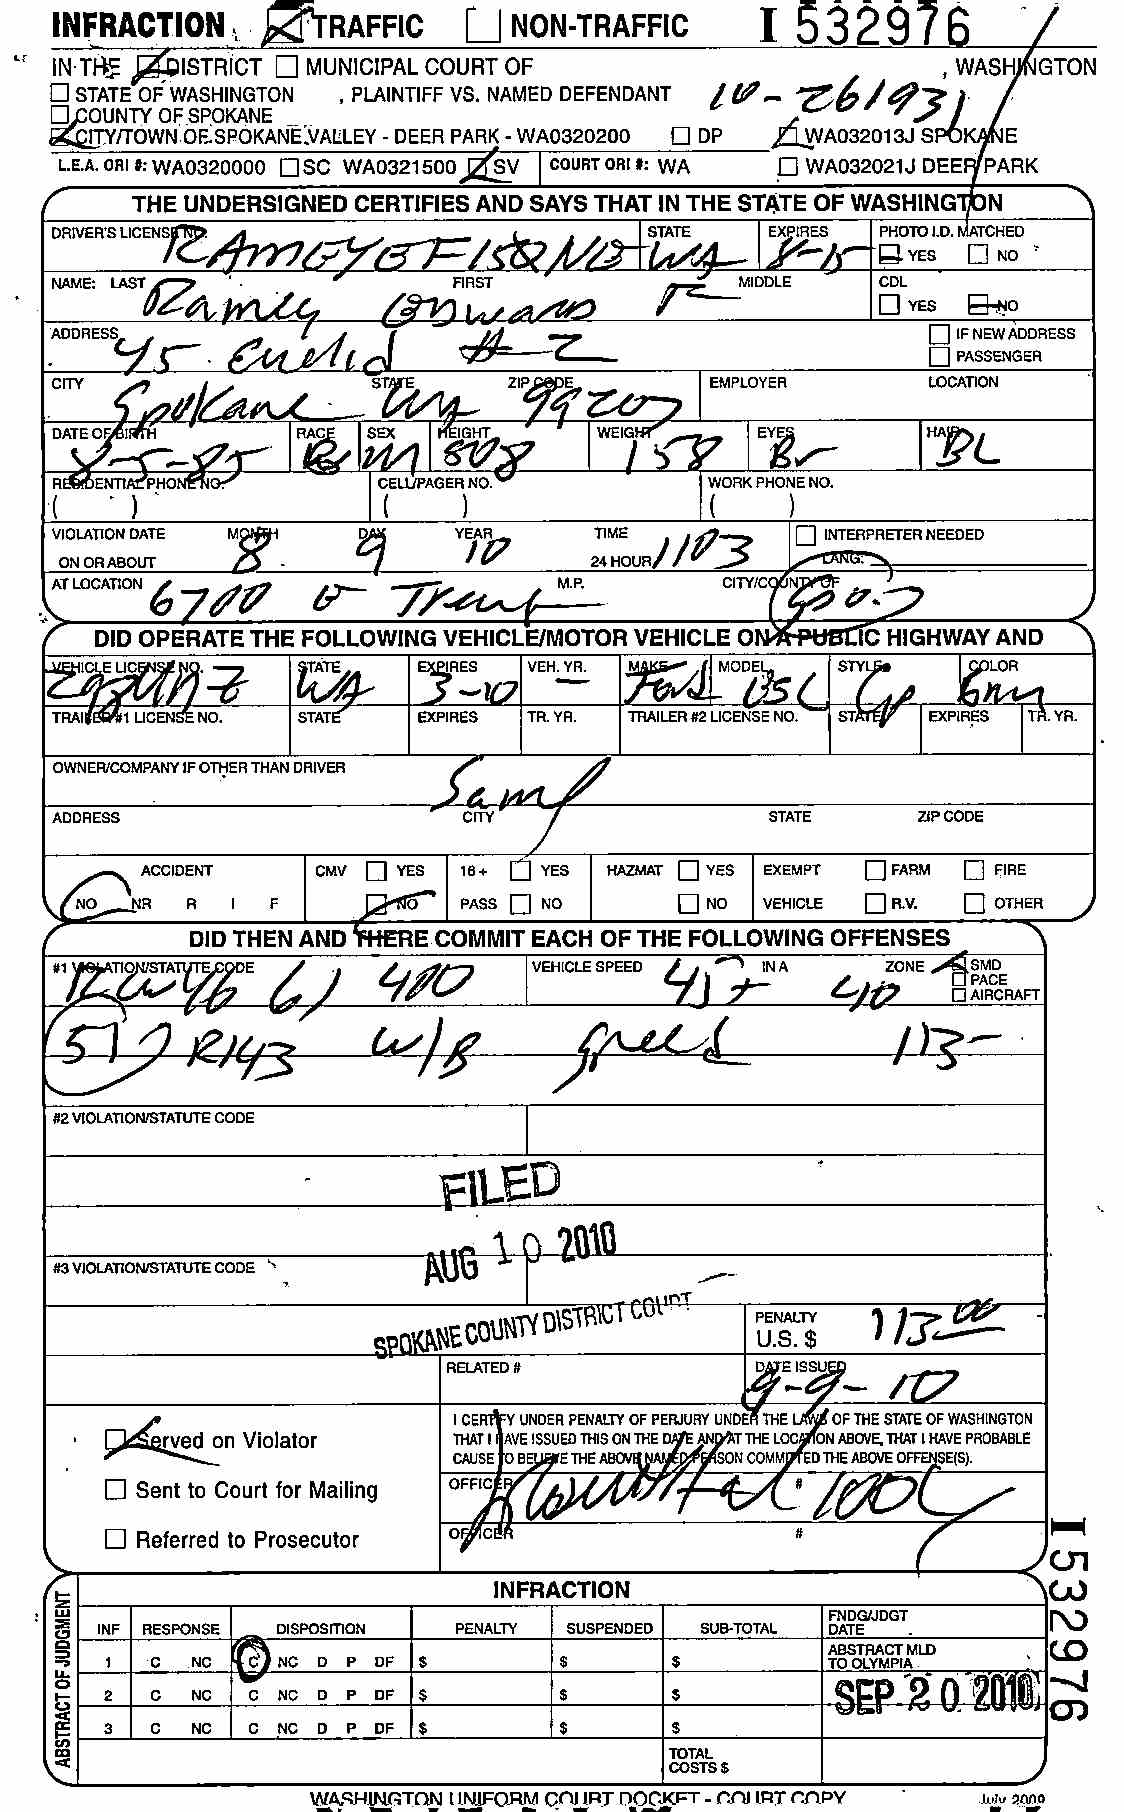 INFRACTION TRAFFIC NON-TRAFFIC I 532976
IN THE DISTRICT MUNICIPAL COURT OF , WASHINGTON
STATE OF WASHINGTON , PLAINTIFF VS. NAMED DEFENDANT 10-261931
COUNTY OF SPOKANE
CITY/TOWN OF SPOKANE VALLEY - DEER PARK - WA0320200 DP WA032013J SPOKANE
L.E.A. ORI #: WA0320000 SC WA0321500 SV COURT ORI #: WA WA032021J DEER PARK
THE UNDERSIGNED CERTIFIES AND SAYS THAT IN THE STATE OF WASHINGTON
DRIVER'S LICENSE NO. STATE EXPIRES PHOTO I.D. MATCHED
WA 8-15 YES NO
NAME: LAST FIRST MIDDLE CDL
Ramey YES NO
ADDRESS IF NEW ADDRESS
45 Euclid # 2 PASSENGER
CITY STATE ZIP CODE EMPLOYER LOCATION
Spokane WA 99207
DATE OF BIRTH RACE SEX HEIGHT WEIGHT EYES HAIR
8-5-85 M 508 158 Br BL
RESIDENTIAL PHONE NO. CELL/PAGER NO. WORK PHONE NO.
( ) ( ) ( )
VIOLATION DATE MONTH DAY YEAR TIME INTERPRETER NEEDED
ON OR ABOUT 8 9 10 24 HOUR 1103 LANG:
AT LOCATION M.P. CITY/COUNTY OF
6700 E Trent
DID OPERATE THE FOLLOWING VEHICLE/MOTOR VEHICLE ON A PUBLIC HIGHWAY AND
VEHICLE LICENSE NO. STATE EXPIRES VEH. YR. MAKE MODEL STYLE COLOR
WA 3-10 — Ford Grn
TRAILER #1 LICENSE NO. STATE EXPIRES TR. YR. TRAILER #2 LICENSE NO. STATE EXPIRES TR. YR.
OWNER/COMPANY IF OTHER THAN DRIVER
Same
ADDRESS CITY STATE ZIP CODE
ACCIDENT CMV YES 16+ YES HAZMAT YES EXEMPT FARM FIRE
NO NR R I F NO PASS NO NO VEHICLE R.V. OTHER
DID THEN AND THERE COMMIT EACH OF THE FOLLOWING OFFENSES
#1 VIOLATION/STATUTE CODE VEHICLE SPEED IN A ZONE SMD
RCW 46 61 400 40 PACE
AIRCRAFT
R143 W/B Speed 113-
#2 VIOLATION/STATUTE CODE
FILED
AUG 10 2010
#3 VIOLATION/STATUTE CODE
SPOKANE COUNTY DISTRICT COURT
PENALTY
U.S. $ 113.00
RELATED # DATE ISSUED
10
Served on Violator
I CERTIFY UNDER PENALTY OF PERJURY UNDER THE LAWS OF THE STATE OF WASHINGTON
THAT I HAVE ISSUED THIS ON THE DATE AND AT THE LOCATION ABOVE, THAT I HAVE PROBABLE
CAUSE TO BELIEVE THE ABOVE NAMED PERSON COMMITTED THE ABOVE OFFENSE(S).
Sent to Court for Mailing
OFFICER #
Referred to Prosecutor
OFFICER #
I 532976
ABSTRACT OF JUDGMENT
INFRACTION
INF RESPONSE DISPOSITION PENALTY SUSPENDED SUB-TOTAL FNDG/JDGT DATE
1 C NC C NC D P DF $ $ $ ABSTRACT MLD TO OLYMPIA
2 C NC C NC D P DF $ $ $ SEP 20 2010
3 C NC C NC D P DF $ $ $
TOTAL COSTS $
WASHINGTON UNIFORM COURT DOCKET - COURT COPY July 2009